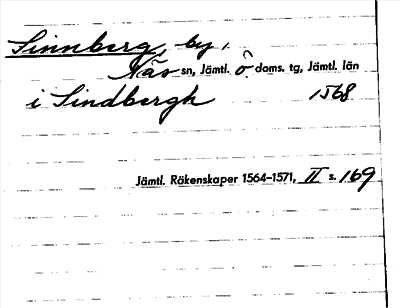 Sinnberg, by,
Näs sn, Jämtl. Ö. doms. tg, Jämtl. län
i Sindbergh 1568
Jämtl. Räkenskaper 1564–1571, II s. 169